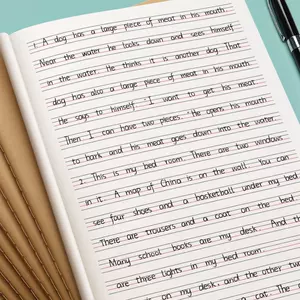 1. A dog has a large piece of meat in his mouth.
Near the water he looks down and sees himself
in the water. He thinks it is another dog. That
dog has also a large piece of meat in his mouth.
He says to himself: "I want to get his meat.
Then I can have two pieces." He opens his mouth
to bark and his meat goes down into the water.
2. This is my bed room. There are two windows
in it. A map of China is on the wall. You can
see four shoes and a basketball under my bed.
There are trousers and a coat on the bed.
Many school books are my desk. And th
are three lights in my bed room.
on my desk, and the other two